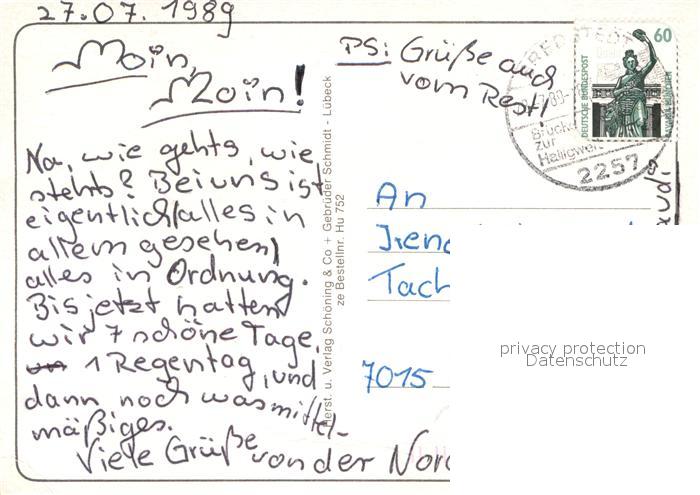 27.07.1989
Moin,
Moin!
PS: Grüße auch
vom Rest!
Na, wie gehts, wie
stehts? Bei uns ist
eigentlich (alles in
allem gesehen)
alles in Ordnung.
Bis jetzt hatten
wir 7 schöne Tage,
1 Regentag, und
dann noch was mittel-
mäßiges.
Viele Grüße von der Nord
Herst. u. Verlag Schöning & Co + Gebrüder Schmidt - Lübeck
ze Bestellnr. Hu 752
60
DEUTSCHE BUNDESPOST
BAVARIA MÜNCHEN
REDSTEDT
Brücke
zur
Halligwelt
2257
An
Irene
Tach
7015
privacy protection
Datenschutz